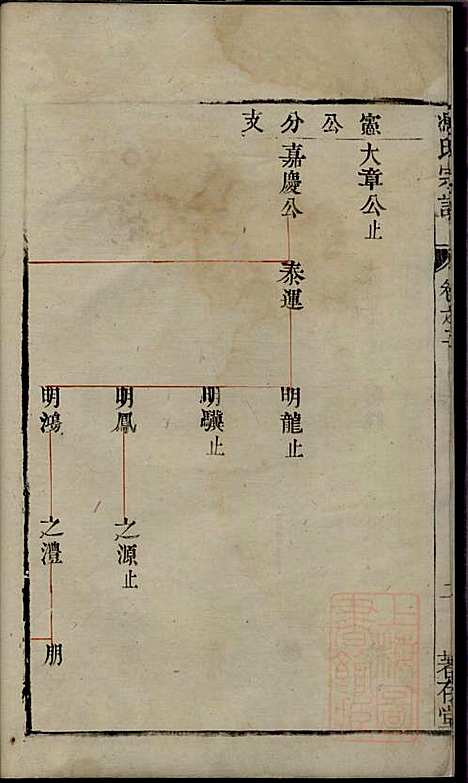 憲大章公止
公
分嘉慶公
支
泰運
明龍止
明驥止
明鳳
明鴻
之源止
之澧
朋
氏宗譜
著存堂
上海圖書館藏